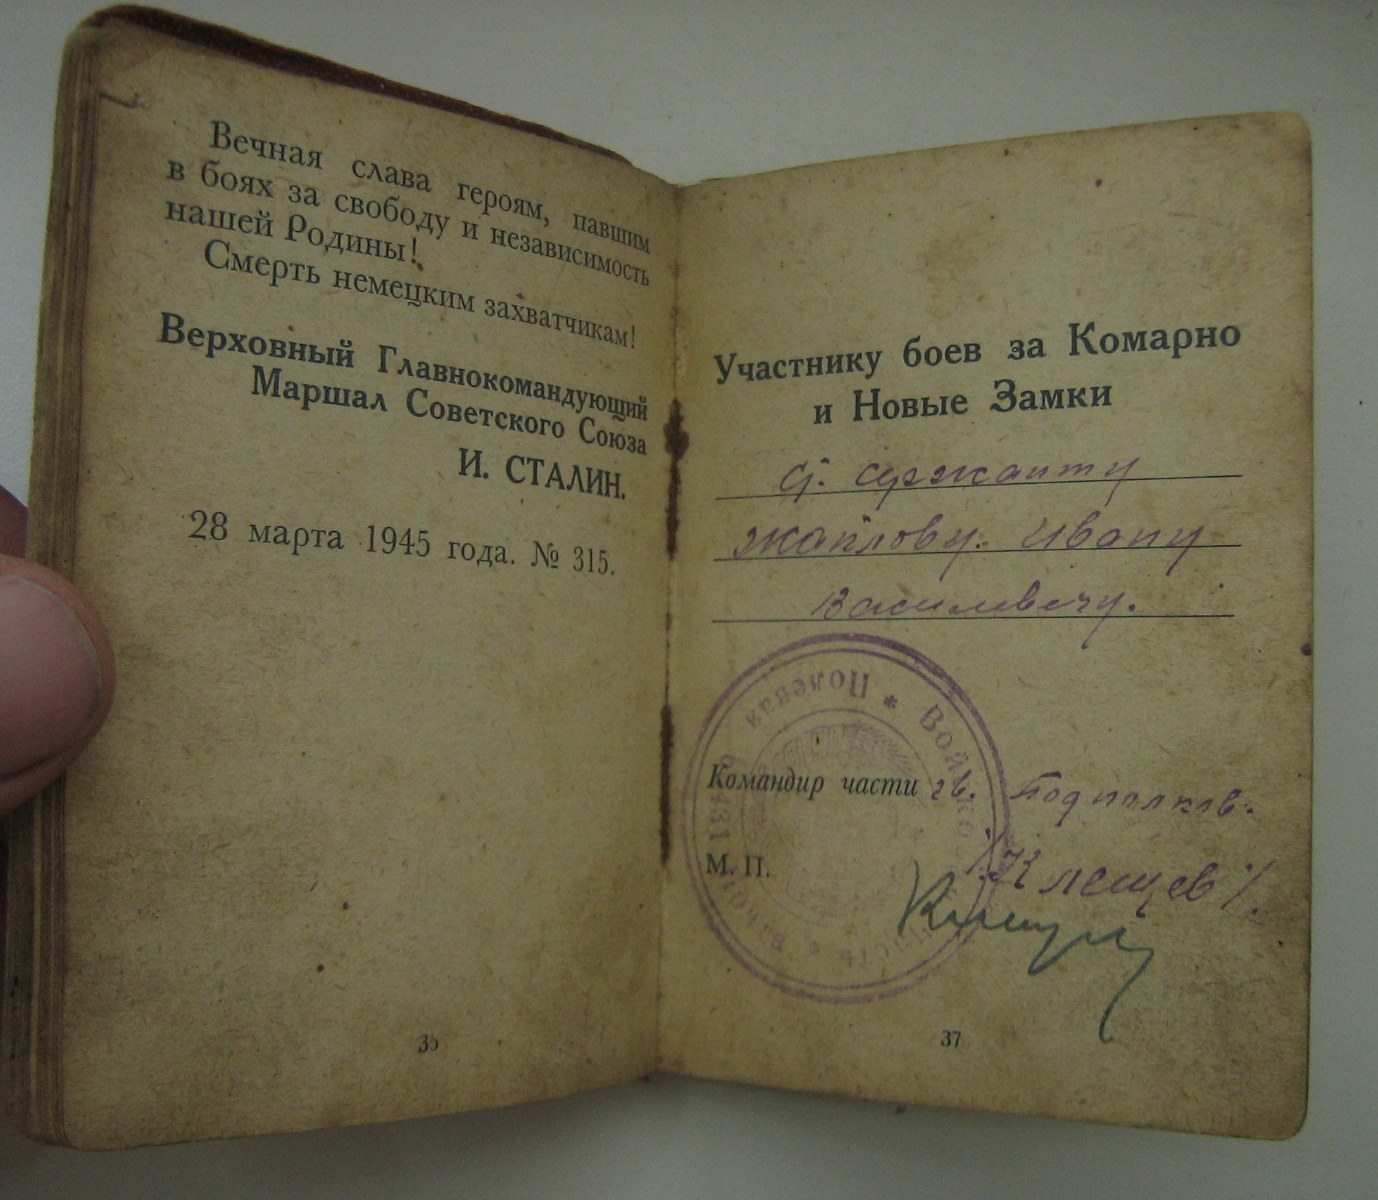 Вечная слава героям, павшим
в боях за свободу и независимость
нашей Родины!
Смерть немецким захватчикам!
Верховный Главнокомандующий
Маршал Советского Союза
И. СТАЛИН.
28 марта 1945 года. № 315.
Участнику боев за Комарно
и Новые Замки
ст. сержанту
Жайлову Ивану
Василевичу.
Полевая * Войско
Командир части гв. подполков.
М. П.
/Клещев/.
37